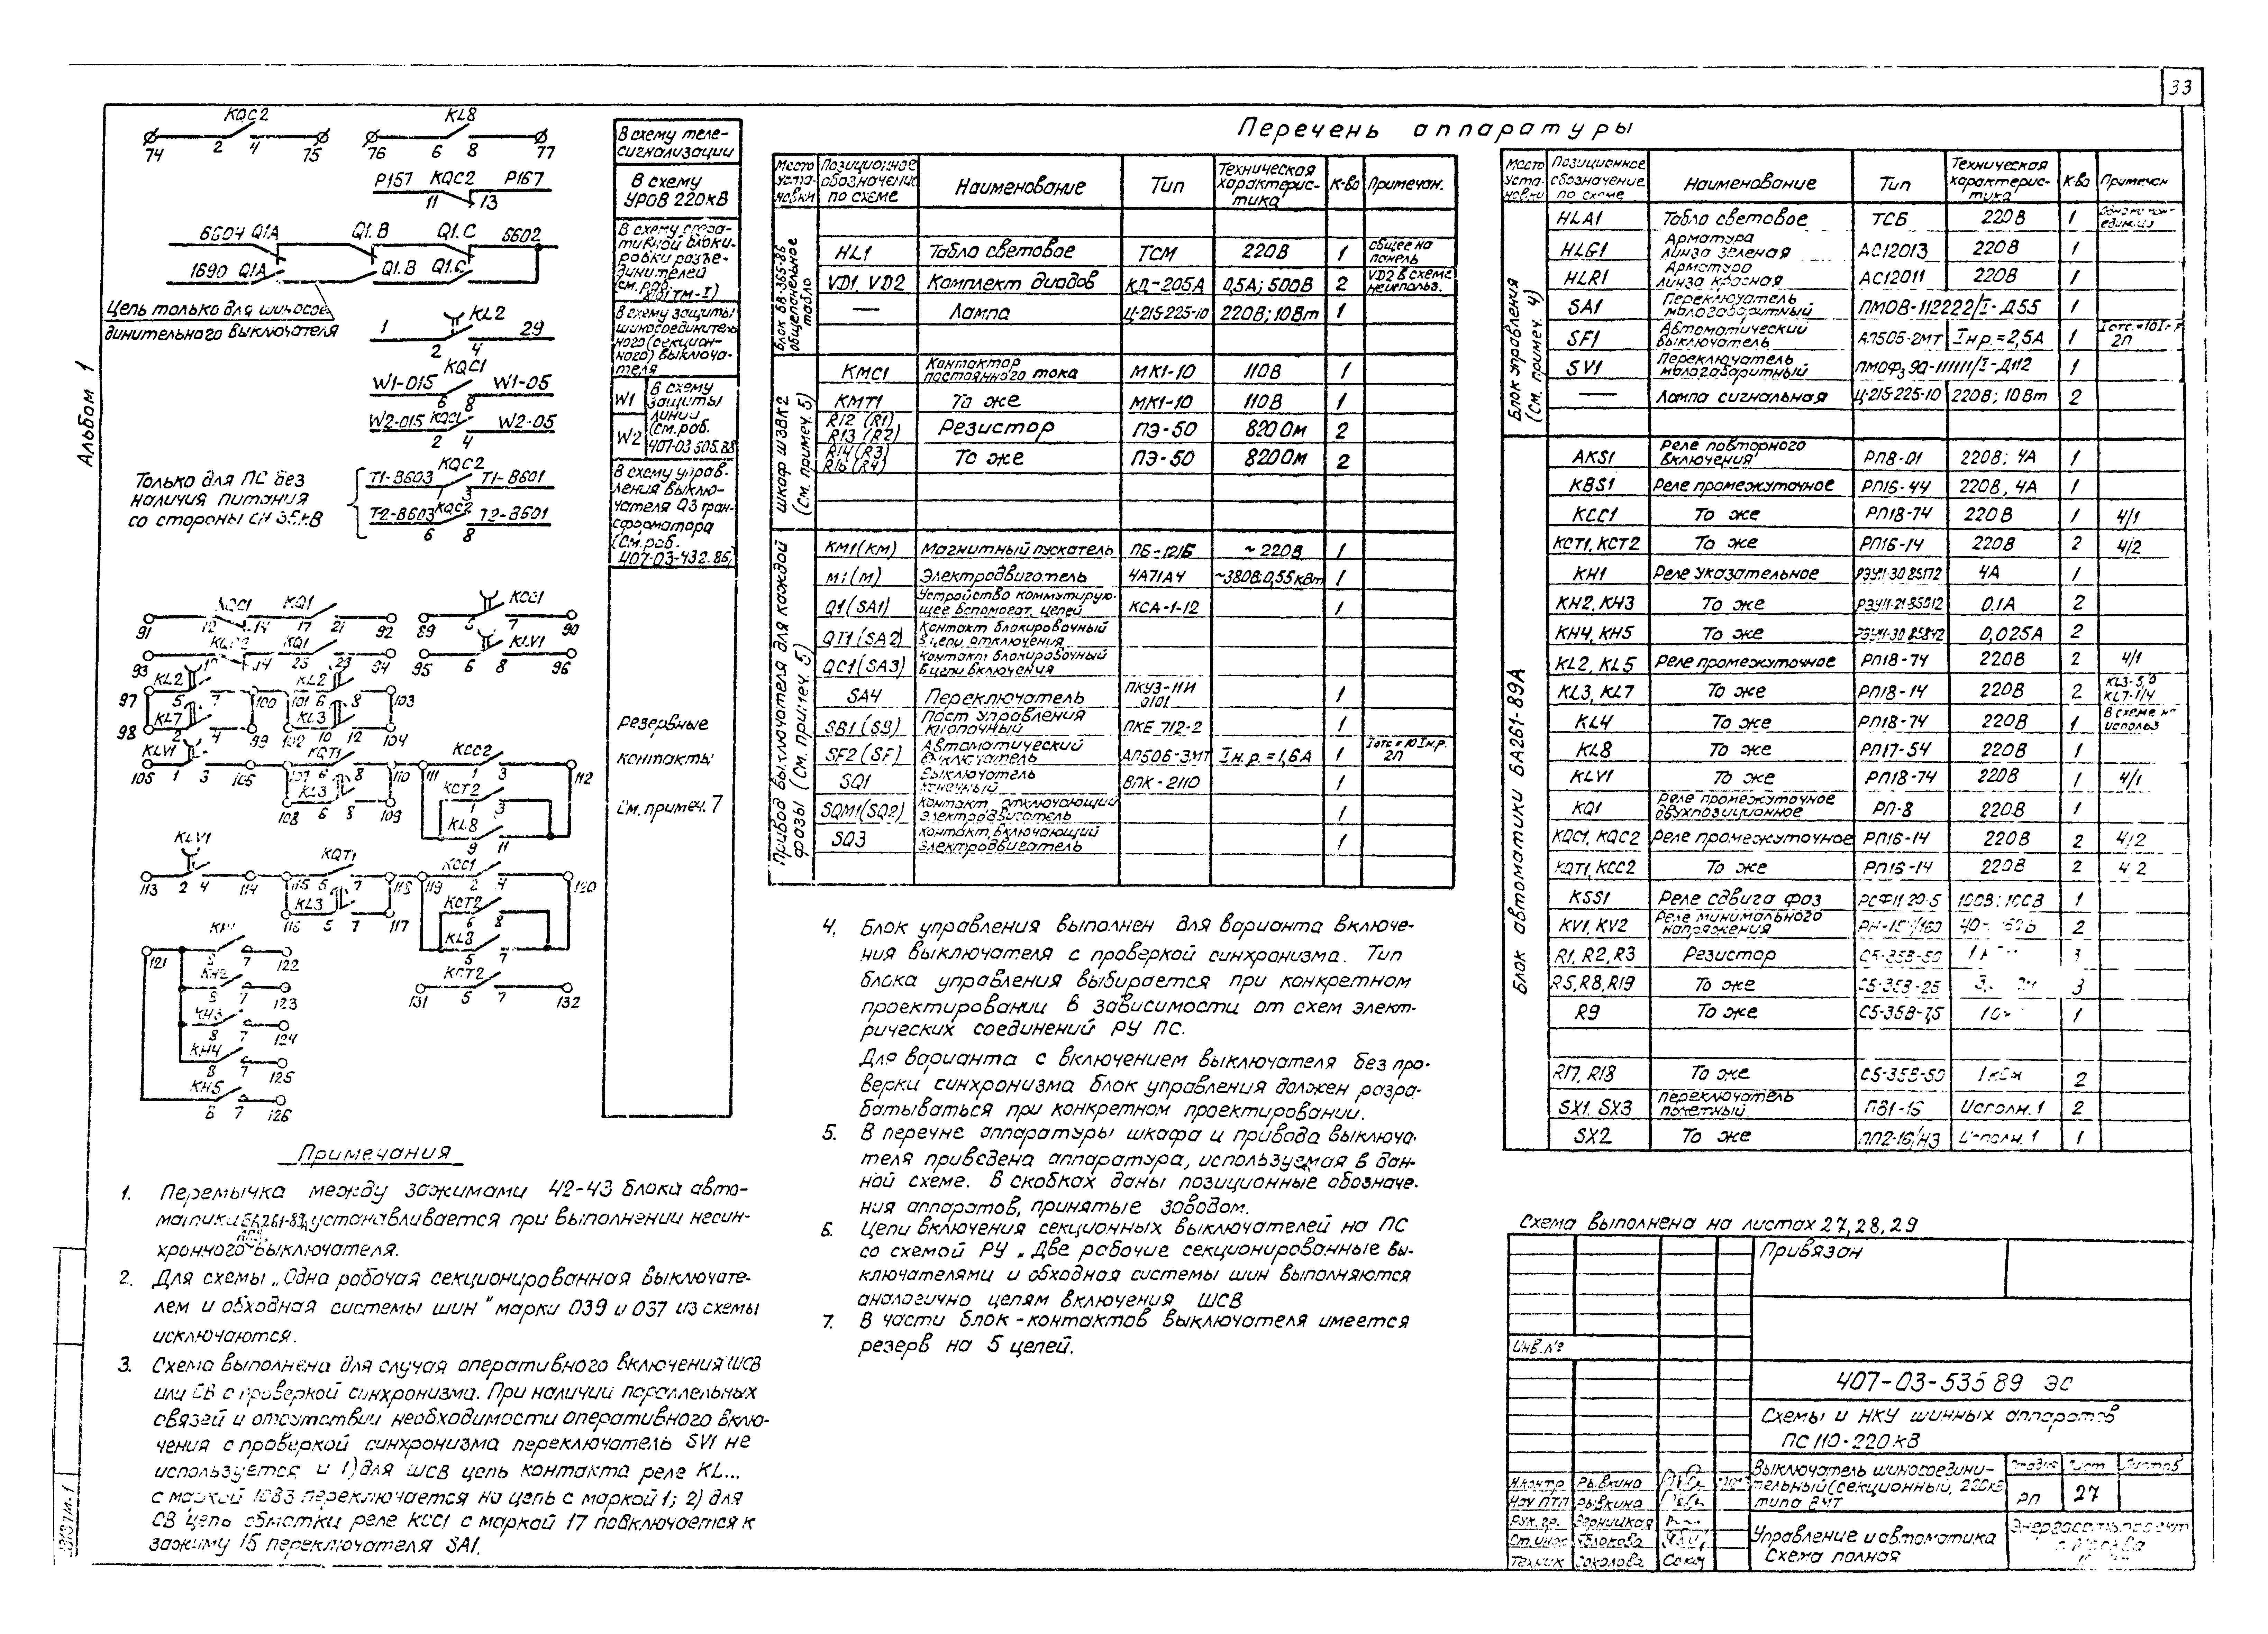 33
Альбом 1
KQC2
KL8
74 2 4 75 76 6 8 77
P157 KQC2 P167
11 13
6604 Q1A Q1.B Q1.C 6602
1690 Q1A Q1.B Q1.C
Цепь только для шиносое-
динительного выключателя
KL2
1 29
2 4
KQC1
W1-015 W1-05
6 8
W2-015 KQC1 W2-05
2 4
Только для ПС без
наличия питания
со стороны СН 35кВ
KQC2
T1-B603 T1-B601
1 3
T2-B603 KQC2 T2-B601
6 8
В схему теле-
сигнализации
В схему
УРОВ 220кВ
В схему опера-
тивной блоки-
ровки разъе-
динителей
(см. раб.
В схему защиты
шиносоединитель
ного (секцион-
ного) выключа-
теля
W1
W2
В схему
защиты
линии
(см. раб.
407-03.505.88
В схему управ-
ления выклю-
чателя Q3 тран-
сформатора
(См. раб.
407-03-432.86)
KCC1 KQ1 KCC1
91 12 14 17 21 92 89 5 7 90
KQ1 KLV1
93 14 23 94 95 6 8 96
97 KL2 5 7 100 101 6 KL2 8 103
98 KL7 2 4 99 102 KL3 10 12 104
KLV1 KQT1 KCC2
105 1 3 106 107 6 8 110 111 1 3 112
KL3 KCT2
108 6 8 109 1 3
KL8
9 11
KLV1 KQT1 KCC1
113 2 4 114 115 5 7 118 119 2 4 120
KL3 KCT2
116 5 7 117 6 8
KL8
5 7
121 7 122
KH2 KCT2
7 123 131 5 7 132
KH3
8 7 124
KH4
8 7 125
KH5
6 7 126
Резервные
контакты
См. примеч. 7
Примечания
1. Перемычка между зажимами 42-43 блока авто-
матики устанавливается при выполнении несин-
хронного АПВ выключателя.
2. Для схемы „Одна рабочая секционированная выключате-
лем и обходная системы шин" марки 039 и 037 из схемы
исключаются.
3. Схема выполнена для случая оперативного включения ШСВ
или СВ с проверкой синхронизма. При наличии параллельных
связей и отсутствии необходимости оперативного вклю-
чения с проверкой синхронизма переключатель SV1 не
используется и 1) для ШСВ цепь контакта реле KL...
с маркой 1083 переключается на цепь с маркой 1; 2) для
СВ цепь обмотки реле KCC1 с маркой 17 подключается к
зажиму 15 переключателя SA1.
Перечень аппаратуры
Место уста-новки Позиционное обозначение по схеме Наименование Тип Техническая характерис-тика К-во Примечан.
Блок БВ-365-86 общепанельное табло
HL1 Табло световое ТСМ 220В 1 общее на панель
VD1, VD2 Комплект диодов КД-205А 0,5А; 500В 2 VD2 в схеме неиспольз.
— Лампа Ц-215-225-10 220В; 10Вт 1
Шкаф ШЗВК2 (См. примеч. 5)
KMC1 Контактор постоянного тока МК1-10 110В 1
KMT1 То же МК1-10 110В 1
R12 (R1) R13 (R2) Резистор ПЭ-50 820 Ом 2
R14 (R3) R16 (R4) То же ПЭ-50 820 Ом 2
Привод выключателя для каждой фазы (См. примеч. 5)
KM1(KM) Магнитный пускатель ПБ-121Б ~220В 1
M1(M) Электродвигатель 4А71А4 ~380В; 0,55 кВт 1
Q1(SA1) Устройство коммутирую-щее вспомогат. цепей КСА-1-12 1
QT1(SA2) Контакт блокировочный в цепи отключения
QC1(SA3) Контакт блокировочный в цепи включения
SA4 Переключатель ПКУ3-11И 0101 1
SB1(SB) Пост управления кнопочный ПКЕ 712-2 1
SF2(SF) Автоматический выключатель АП50Б-3МТ Iн.р.=1,6А 1 Iотс=10Iн.р. 2П
SQ1 Выключатель конечный ВПК-2110 1
SQM1(SQ2) Контакт отключающий электродвигатель 1
SQ3 Контакт включающий электродвигатель 1
4. Блок управления выполнен для варианта включе-
ния выключателя с проверкой синхронизма. Тип
блока управления выбирается при конкретном
проектировании в зависимости от схем элект-
рических соединений РУ ПС.
Для варианта с включением выключателя без про-
верки синхронизма блок управления должен разра-
батываться при конкретном проектировании.
5. В перечне аппаратуры шкафа и привода выключа-
теля приведена аппаратура, используемая в дан-
ной схеме. В скобках даны позиционные обозначе-
ния аппаратов, принятые заводом.
6. Цепи включения секционных выключателей на ПС
со схемой РУ „Две рабочие секционированные вы-
ключателями и обходная системы шин выполняются
аналогично цепям включения ШСВ
7. В части блок-контактов выключателя имеется
резерв на 5 цепей.
Место уста-новки Позиционное обозначение по схеме Наименование Тип Техническая характерис-тика К-во Примечан
Блок управления (См. примеч. 4)
HLA1 Табло световое ТСБ 220В 1
HLG1 Арматура линза зеленая АС12013 220В 1
HLR1 Арматура линза красная АС12011 220В 1
SA1 Переключатель малогабаритный ПМОВ-112222/I-Д55 1
SF1 Автоматический выключатель АП50Б-2МТ Iн.р.=2,5А 1 Iотс.=10Iн.р 2П
SV1 Переключатель малогабаритный ПМОФ₃90-111111/I-Д112 1
— Лампа сигнальная Ц-215-225-10 220В; 10Вт 2
Блок автоматики БА261-89А
AKS1 Реле повторного включения РПВ-01 220В; 4А 1
KBS1 Реле промежуточное РП16-44 220В, 4А 1
KCC1 То же РП18-74 220В 1 4/1
KCT1, KCT2 То же РП16-14 220В 2 4/2
KH1 Реле указательное РЭУ11-30 85172 4А 1
KH2, KH3 То же РЭУ11-21-85012 0,1А 2
KH4, KH5 То же РЭУ11-30 85842 0,025А 2
KL2, KL5 Реле промежуточное РП18-74 220В 2 4/1
KL3, KL7 То же РП18-14 220В 2 KL3-5,0 KL7-1/4
KL4 То же РП18-74 220В 1 В схеме не использ
KL8 То же РП17-54 220В 1
KLV1 То же РП18-74 220В 1 4/1
KQ1 Реле промежуточное двухпозиционное РП-8 220В 1
KQC1, KQC2 Реле промежуточное РП16-14 220В 2 4/2
KQT1, KCC2 То же РП16-14 220В 2 4 2
KSS1 Реле сдвига фаз РСФ11-20-5 100В; 100В 1
KV1, KV2 Реле минимального напряжения 2
R1, R2, R3 Резистор С5-35В-50 3
R5, R8, R19 То же С5-35В-25 3
R9 То же С5-35В-7,5 1
R17, R18 То же С5-35В-50 1кОм 2
SX1, SX3 Переключатель пакетный ПВ1-16 Исполн. 1 2
SX2 То же ПП2-16/Н3 Исполн. 1 1
Схема выполнена на листах 27, 28, 29
Привязан
Инв. №
407-03-535 89 ЭС
Схемы и НКУ шинных аппаратов
ПС 110-220 кВ
Н.контр Рывкина
Нач ПТП Рывкина
Рук. гр. Зерницкая
Ст. инж Яблокова
Техник Соколова
Выключатель шиносоедини-
тельный (секционный, 220кВ
типа ВМТ
Стадия Лист Листов
РП 27
Управление и автоматика
Схема полная
Энергосетьпроект
г. Москва